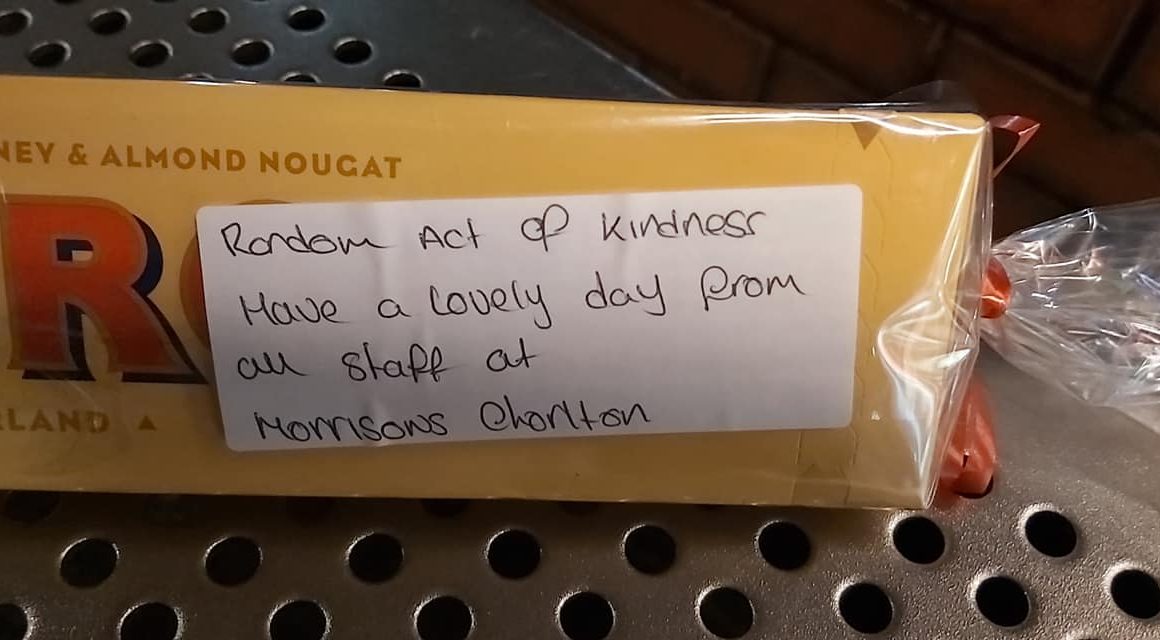 NEY & ALMOND NOUGAT
R
RLAND
Random Act of Kindness
Have a lovely day from
all staff at
Morrisons Chorlton